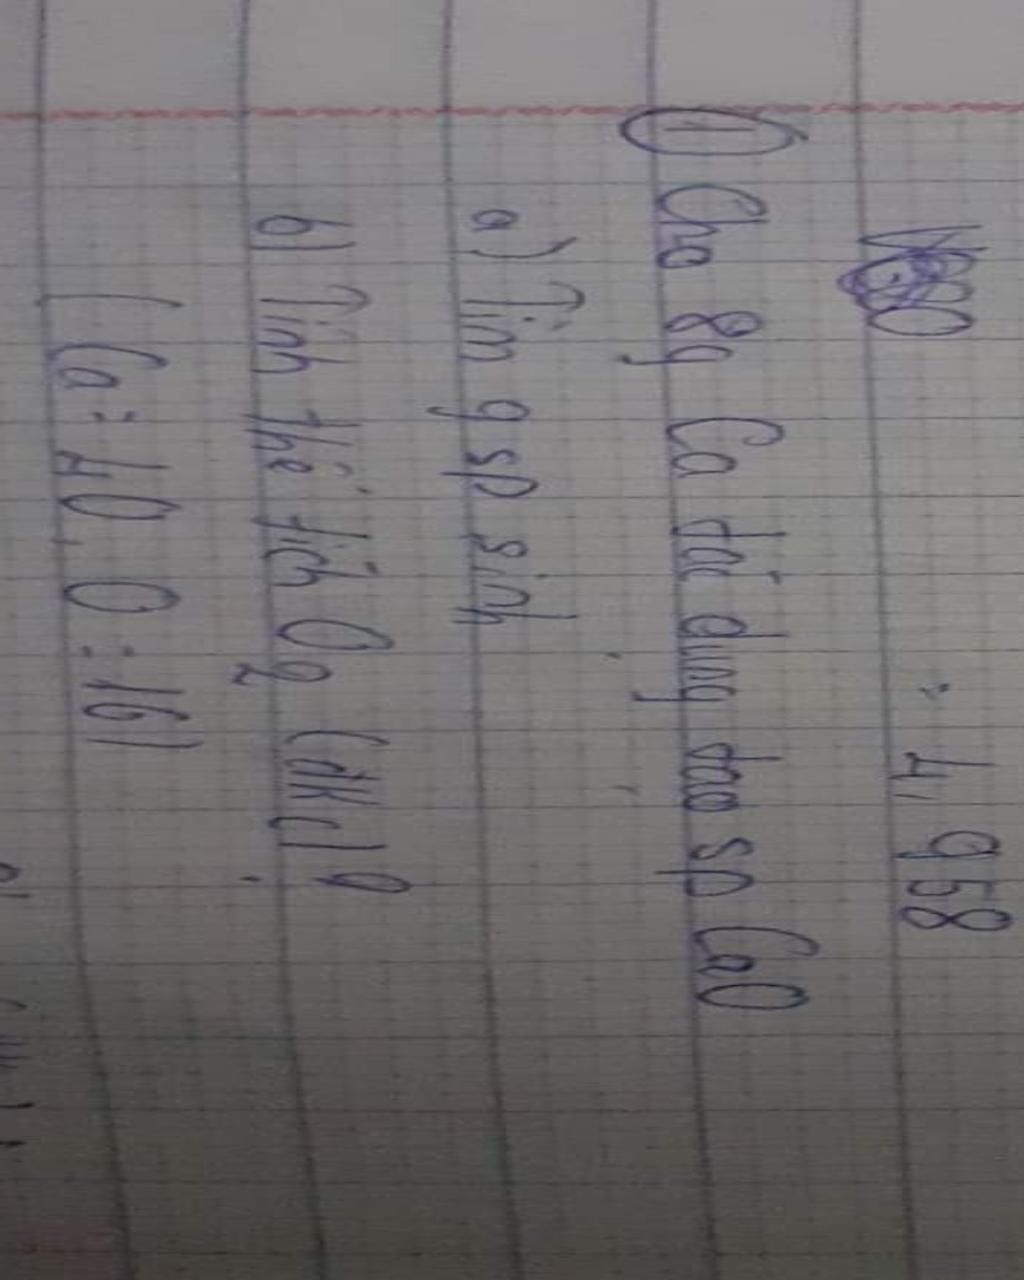 4,958
① Cho 8g Ca tác dụng tạo sp CaO
a) Tìm g sp sinh
b) Tính thể tích O2 (đkc) ?
(Ca: 40, O: 16)